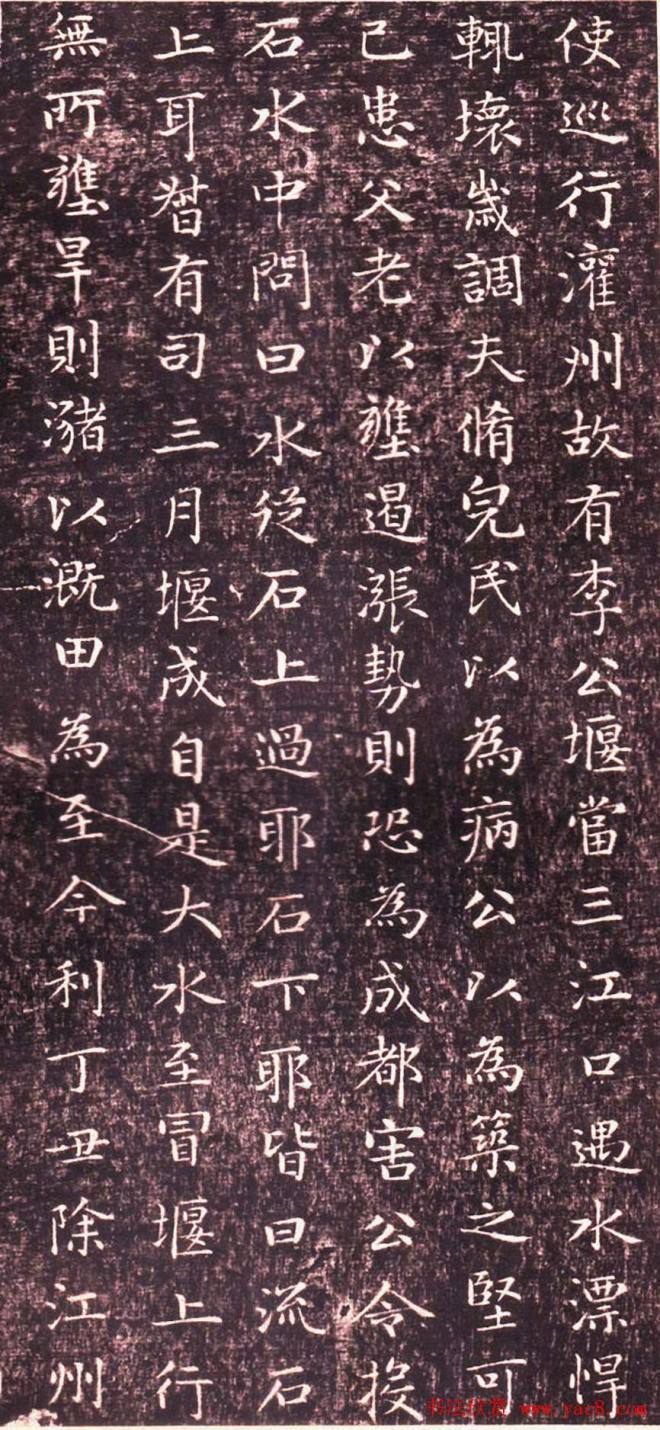 使巡行灌州故有李公堰當三江口遇水漂悍
輙壞歲調夫脩完民以為病公以為築之堅可
已患父老以壅遏漲勢則恐為成都害公令投
石水中問曰水從石上過耶石下耶皆曰流石
上耳督有司三月堰成自是大水至冒堰上行
無所壅旱則瀦以溉田為至今利丁丑除江州
书法欣赏 www.yac8.com